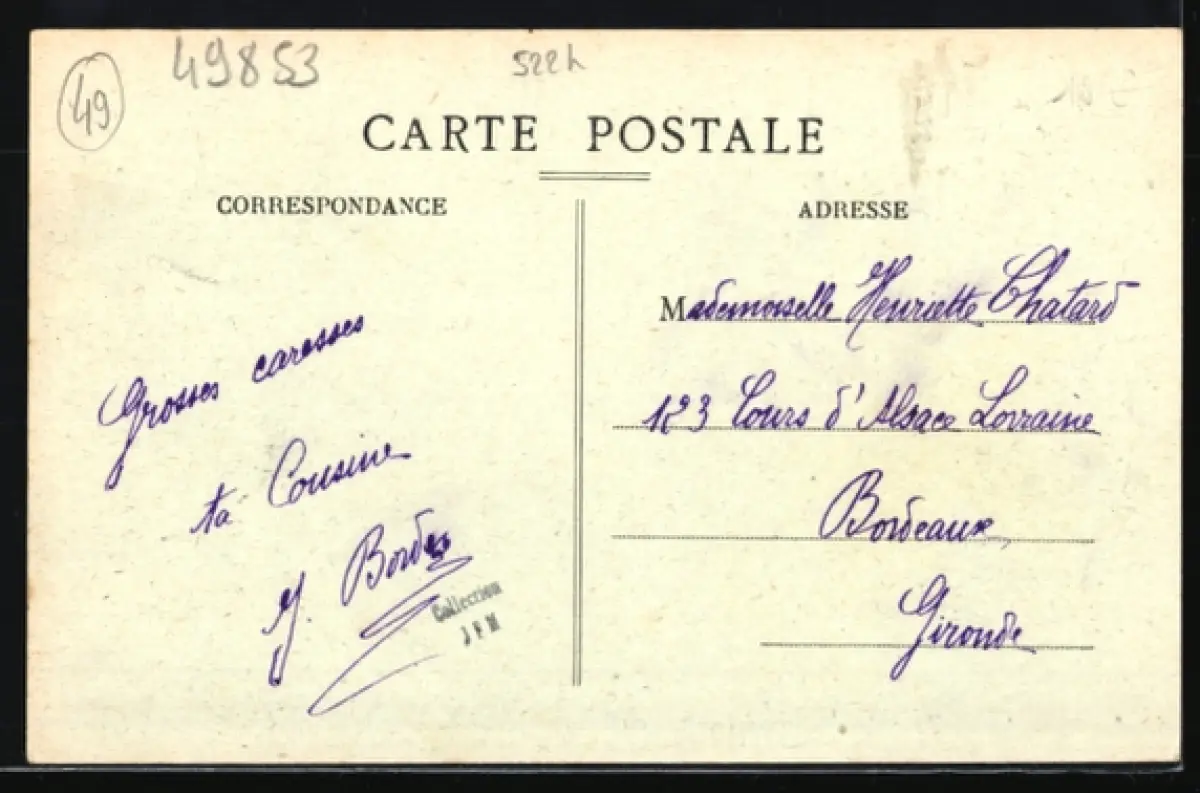 49
49853
522h
CARTE POSTALE
CORRESPONDANCE
Grosses caresses
ta Cousine
Y. Bordes
Collection
J F M
ADRESSE
Mademoiselle Henriette Chatard
123 Cours d'Alsace Lorraine
Bordeaux
Gironde